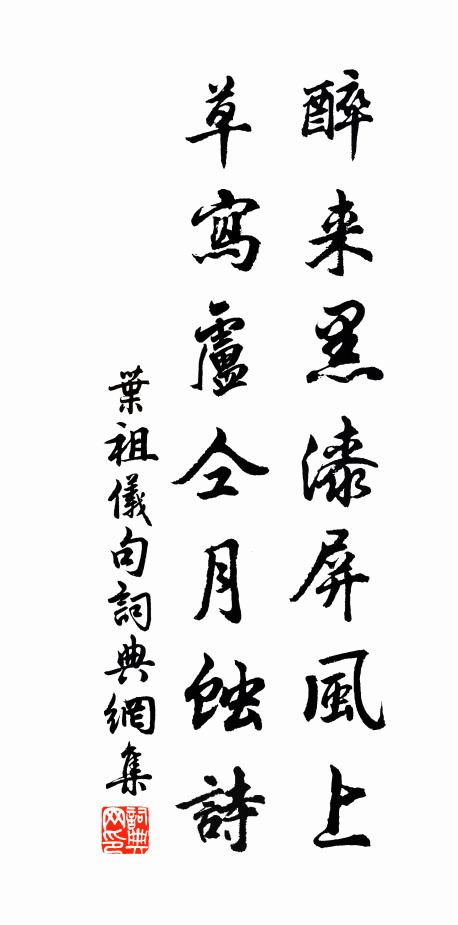 醉来黑漆屏風上
草寫盧仝月蝕詩
葉祖儀句詞典網集
詞典网印